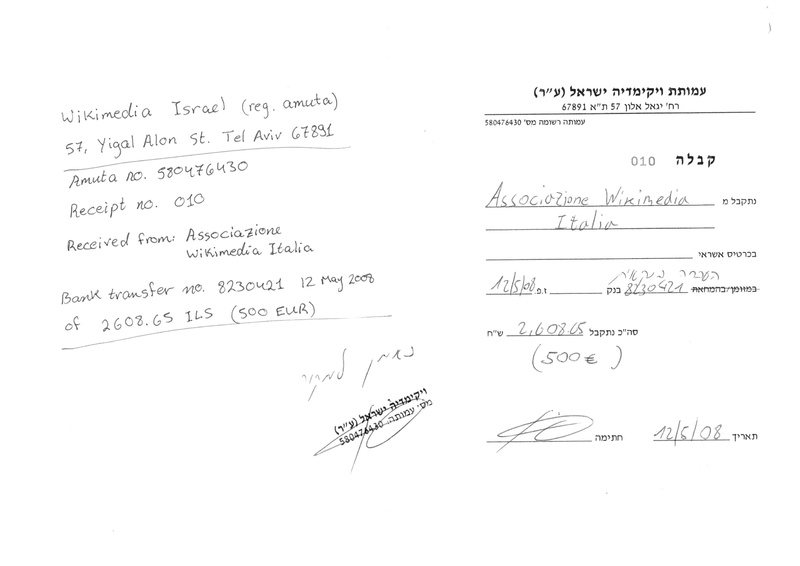 Wikimedia Israel (reg. amuta)
57, Yigal Alon St. Tel Aviv 67891
Amuta no. 580476430
Receipt no. 010
Received from: Associazione
Wikimedia Italia
Bank transfer no. 8230421 12 May 2008
of 2608.65 ILS (500 EUR)
נאמן למקור
ויקימדיה ישראל (ע"ר)
מס' עמותה 580476430
עמותת ויקימדיה ישראל (ע"ר)
רח' יגאל אלון 57 ת"א 67891
עמותה רשומה מס' 580476430
קבלה 010
נתקבל מ Associazione Wikimedia
Italia
בכרטיס אשראי
העברה בנקאית
במזומן/בהמחאה בנק 8230421 ז.פ. 12/5/08
סה"כ נתקבל 2,608.65 ש"ח
(500 €)
תאריך 12/5/08 חתימה